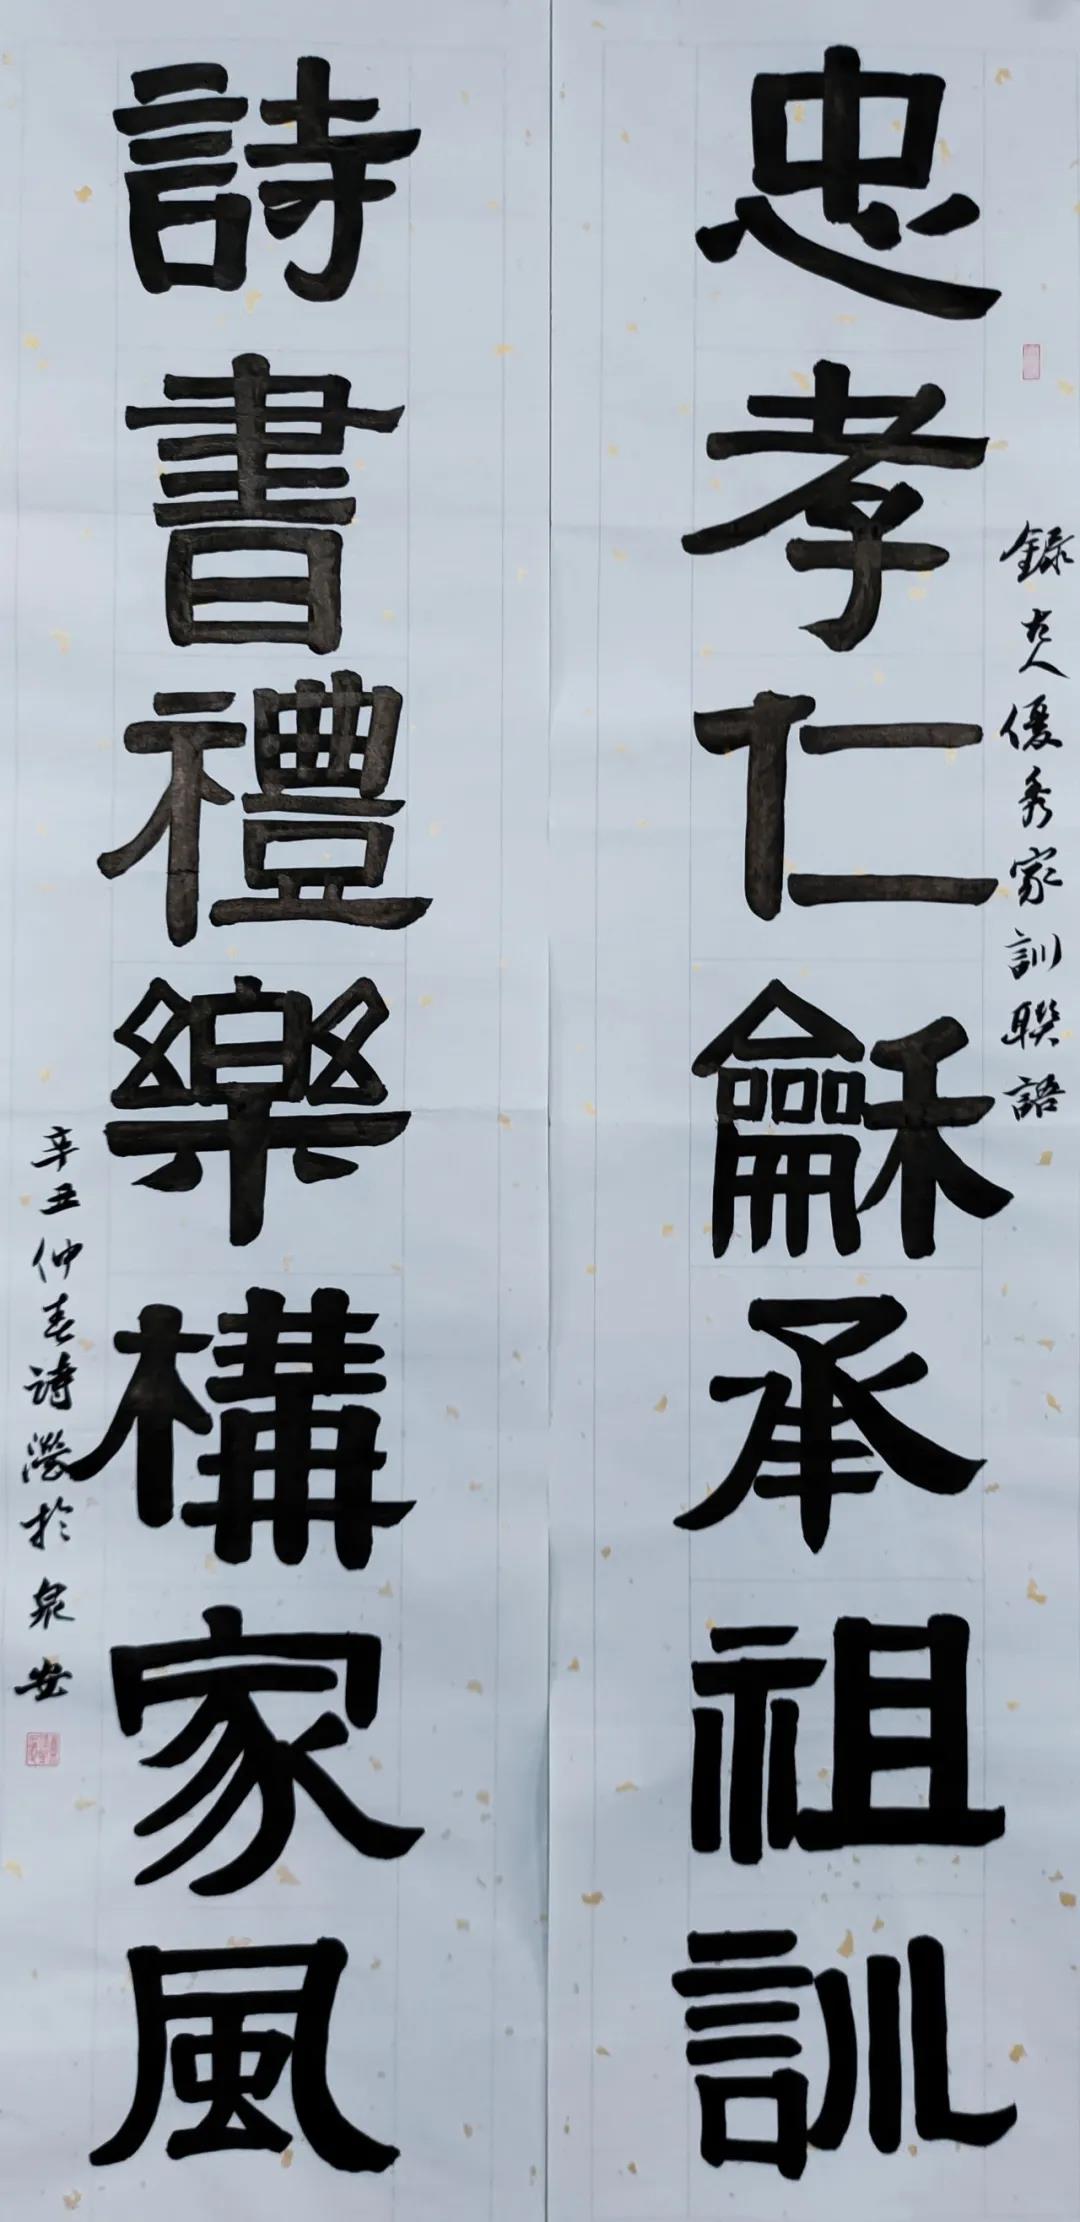 錄古人優秀家訓聯語
忠孝仁龢承祖訓
詩書禮樂構家風
辛丑仲春詩瀅於泉安